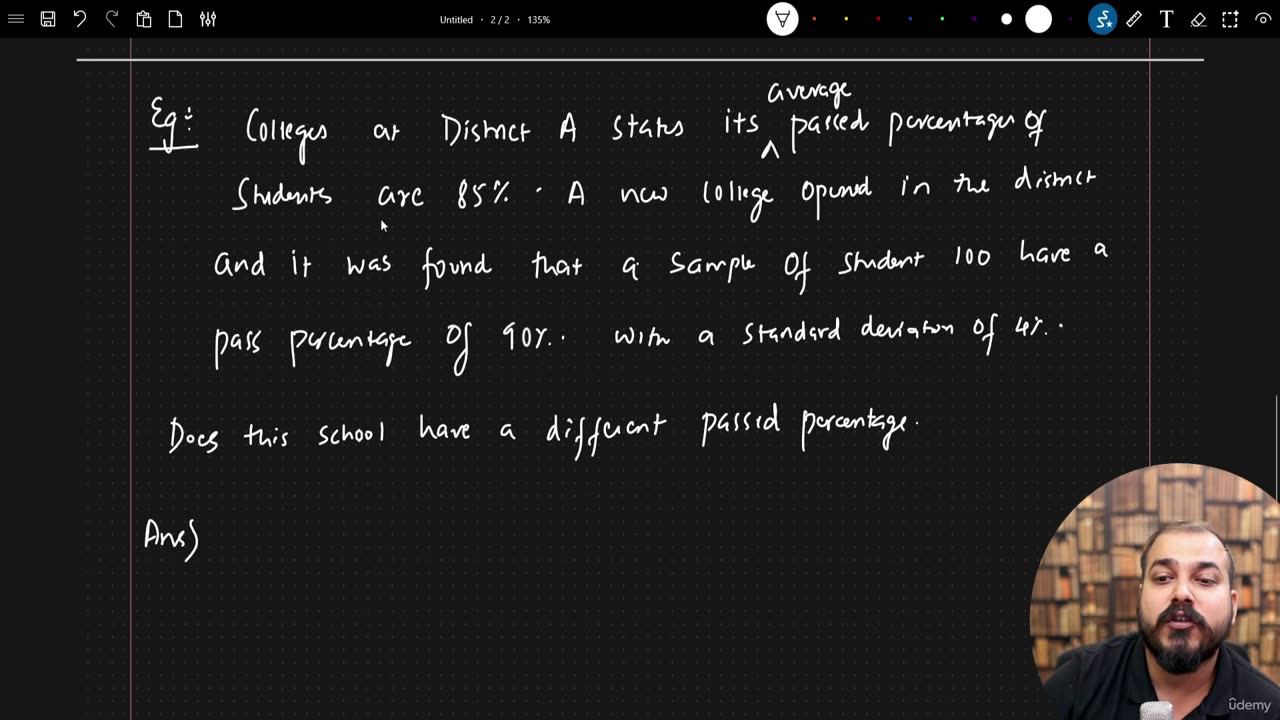 Untitled • 2 / 2 • 135%
T
average
Eg: Colleges at District A states its ^ passed percentages of
Students are 85%. A new college opened in the district
and it was found that a sample of student 100 have a
pass percentage of 90%. with a standard deviation of 4%.
Does this school have a different passed percentage.
Ans)
ûdemy